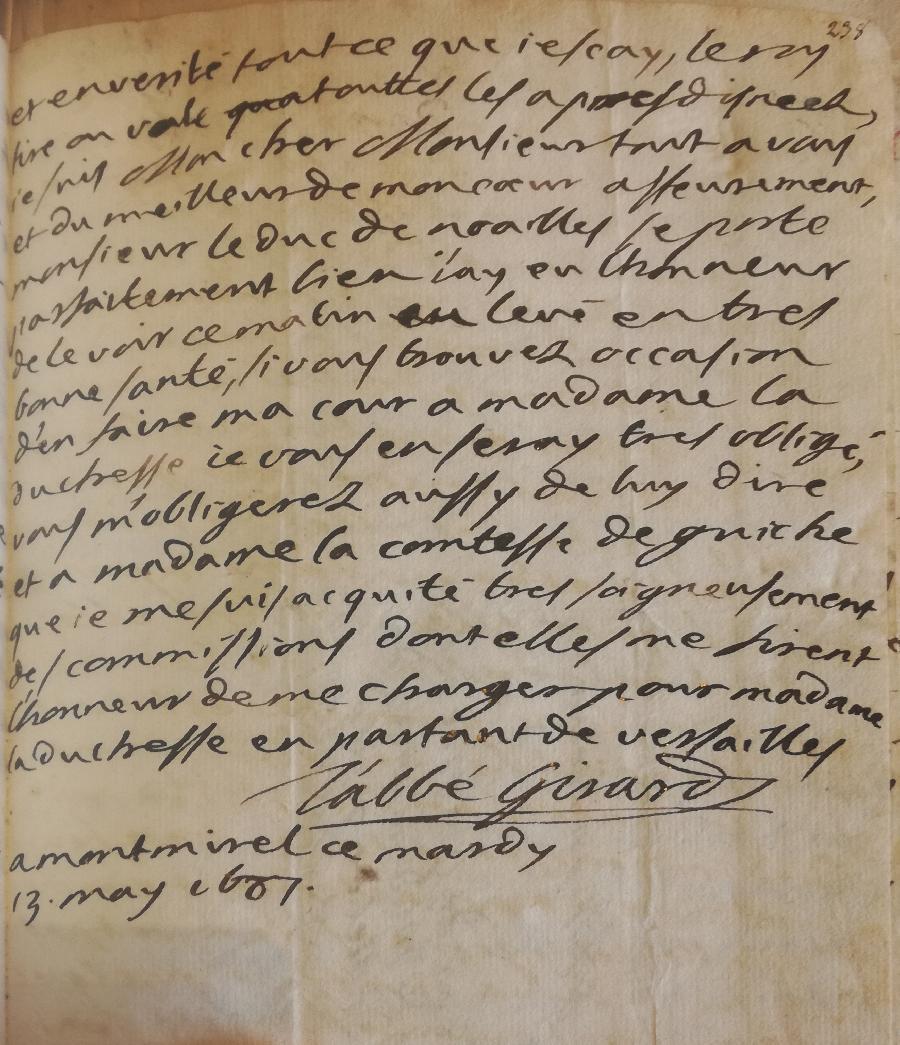 238
et en verité tout ce que ie scay, le roy
tire au vol quatouttes les apresdisneez,
ie suis Mon cher Monsieur tout a vous
et du meilleur de mon cœur asseurement,
monsieur le duc de noailles se porte
parfaitement bien i'ay eu lhonneur
de le voir ce matin levé en tres
bonne santé, si vous trouvez occasion
d'en faire ma cour a madame la
duchesse ie vous en seray tres obligé,
vous m'obligerez aussy de luy dire
et a madame la comtesse de guiche
que ie me suis acquité tres soigneusement
des commissions dont elles me firent
lhonneur de me charger pour madame
la duchesse en partant de versailles
l'abbé Girard
a montmirel ce mardy
13. may